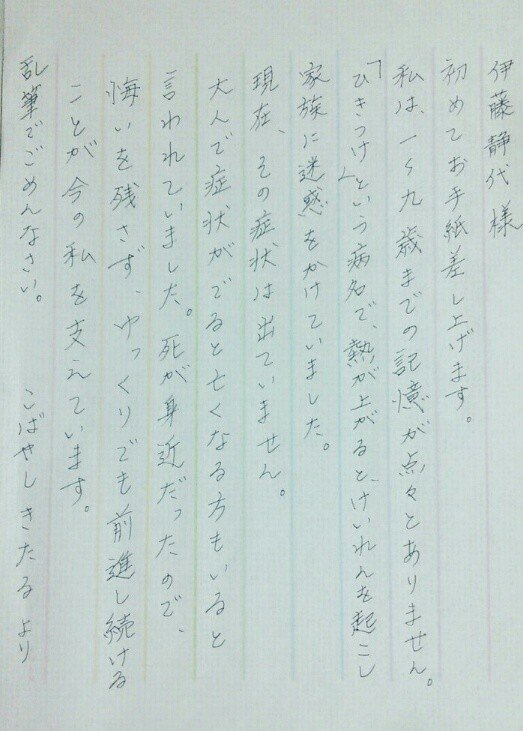 伊藤静代様
初めてお手紙差し上げます。
私は、一〜九歳までの記憶が点々とありません。
「ひきつけ」という病名で、熱が上がると、けいれんを起こし
家族に迷惑をかけていました。
現在、その症状は出ていません。
大人で症状がでると亡くなる方もいると
言われていました。死が身近だったので、
悔いを残さず、ゆっくりでも前進し続ける
ことが今の私を支えています。
乱筆でごめんなさい。
こばやし きたる より